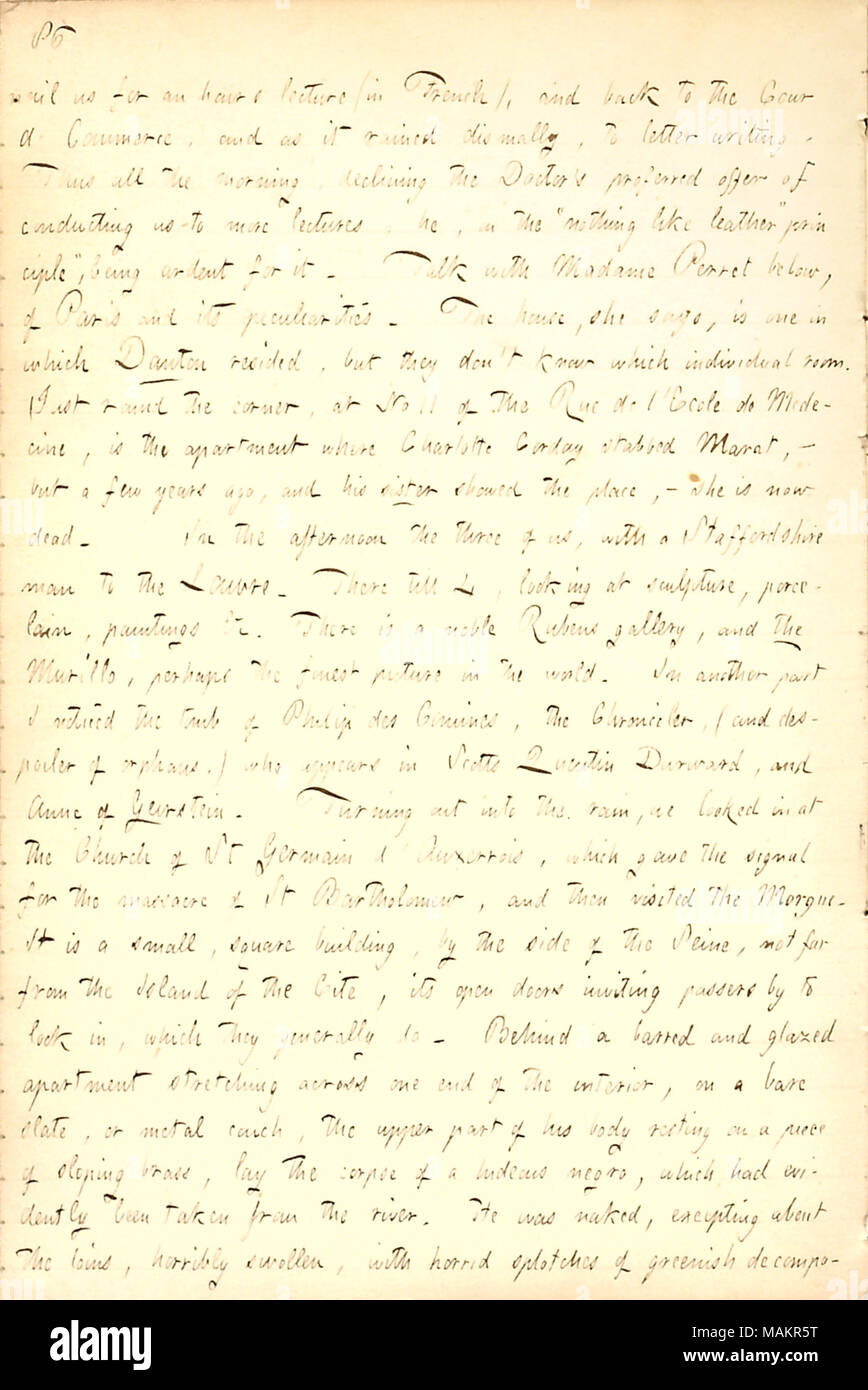 86
us for an hours lecture (in French), and back to the Cour
de Commerce, and as it rained dismally, to letter writing.
Thus all the morning, declining the Doctor's proferred offer of
conducting us to more lectures, he, on the "nothing like leather" prin
ciple", being ardent for it. Talk with Madame Perret below,
of Paris and its peculiarities. The house, she says, is one in
which Danton resided, but they don't know which individual room.
(Just round the corner, at No 11 of the Rue de l'Ecole de Mede-
cine, is the apartment where Charlotte Corday stabbed Marat, —
but a few years ago, and his sister showed the place, — she is now
dead. In the afternoon the three of us, with a Staffordshire
man to the Louvre. There till 4, looking at sculpture, porce-
lain, paintings &c. There is a noble Rubens gallery, and the
Murillo, perhaps the finest picture in the world. In another part
I noticed the tomb of Philip des Comines, the Chronicler, (and des-
poiler of orphans,) who appears in Scotts Quentin Durward, and
Anne of Geirstein. Turning out into the rain, we looked in at
the Church of St Germain d'Auxerrois, which gave the signal
for the massacre of St Bartholomew, and then visited the Morgue.
It is a small, square building, by the side of the Seine, not far
from the Island of the Cite, its open doors inviting passers by to
look in, which they generally do. Behind a barred and glazed
apartment stretching across one end of the interior, on a bare
slate, or metal couch, the upper part of his body resting on a piece
of sloping brass, lay the corpse of a hideous negro, which had evi-
dently been taken from the river. He was naked, excepting about
the loins, horribly swollen, with horrid splotches of greenish decompo-
alamy
Image ID: MAKR5T
www.alamy.com